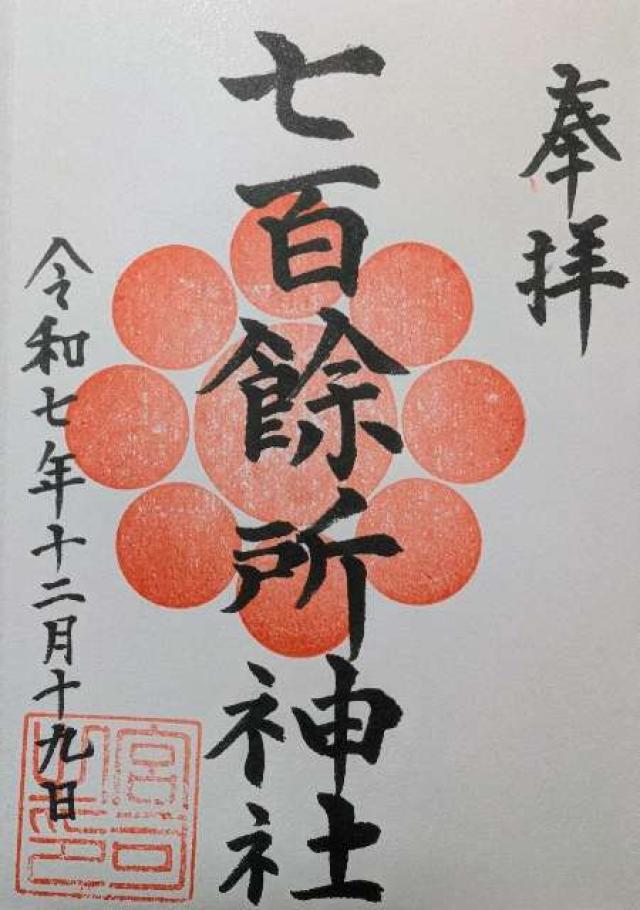 奉拝
七百餘所神社
令和七年十二月十九日
宮司之印